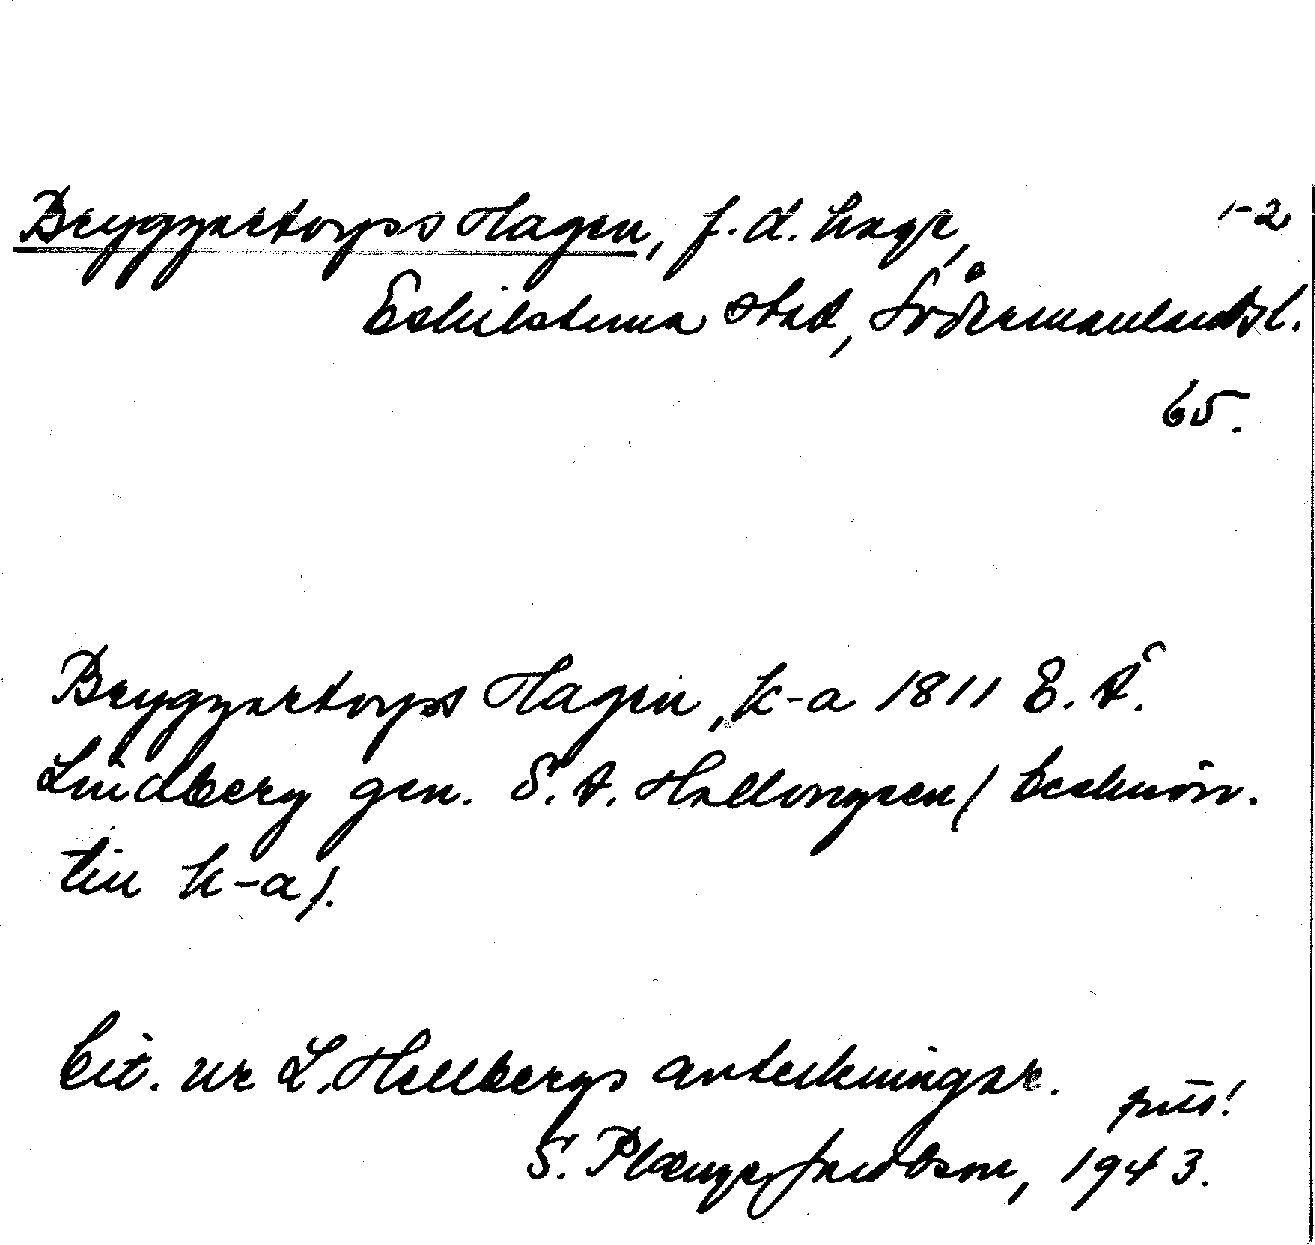 Bryggartorps Hagen, f.d. hage, 1-2
Eskilstuna stad, Södermanlands l.
65.
Bryggartorps Hagen, k-a 1811 E. Å.
Lindberg gen. S. A. Hallongren (beskrivn.
till k-a).
Cit. ur L. Hellbergs anteckningar.
S. Plænge Jacobson, 1943.